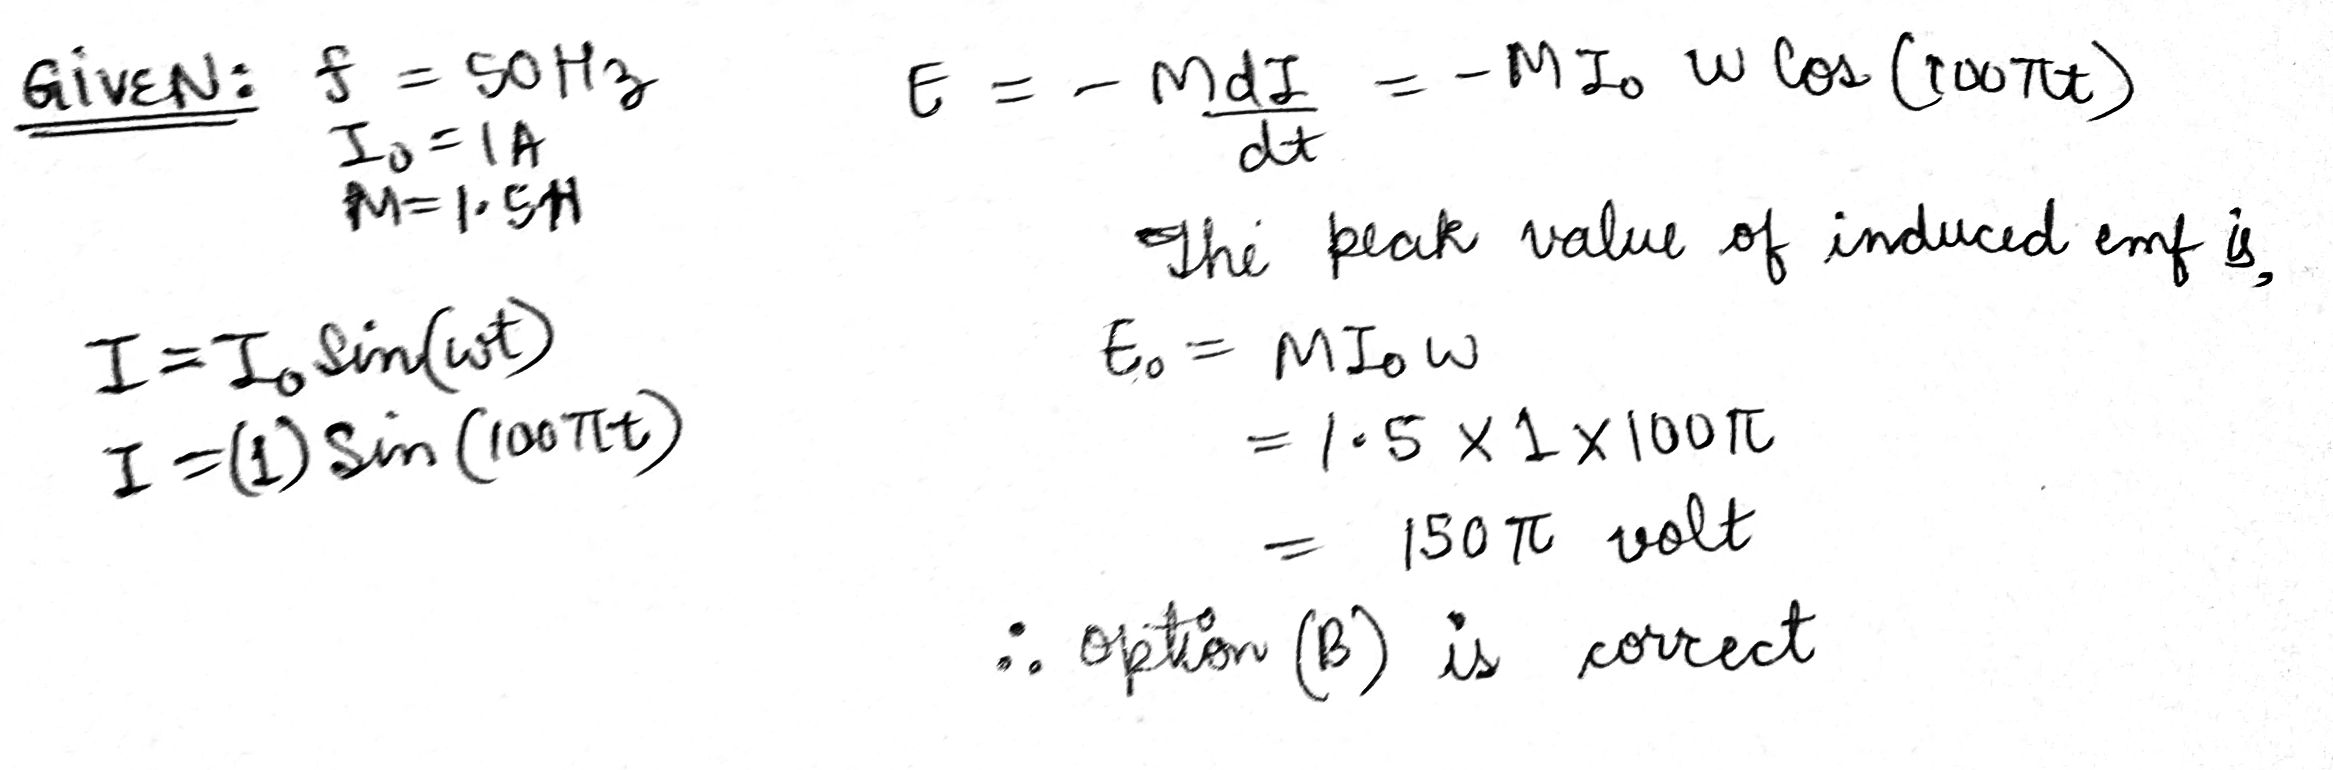 GIVEN: f = 50Hz
I₀ = 1A
M = 1.5H
I = I₀ Sin(ωt)
I = (1) Sin (100πt)
E = - MdI/dt = - M I₀ ω Cos (100πt)
The peak value of induced emf is,
E₀ = M I₀ ω
= 1.5 × 1 × 100π
= 150 π volt
∴ option (B) is correct